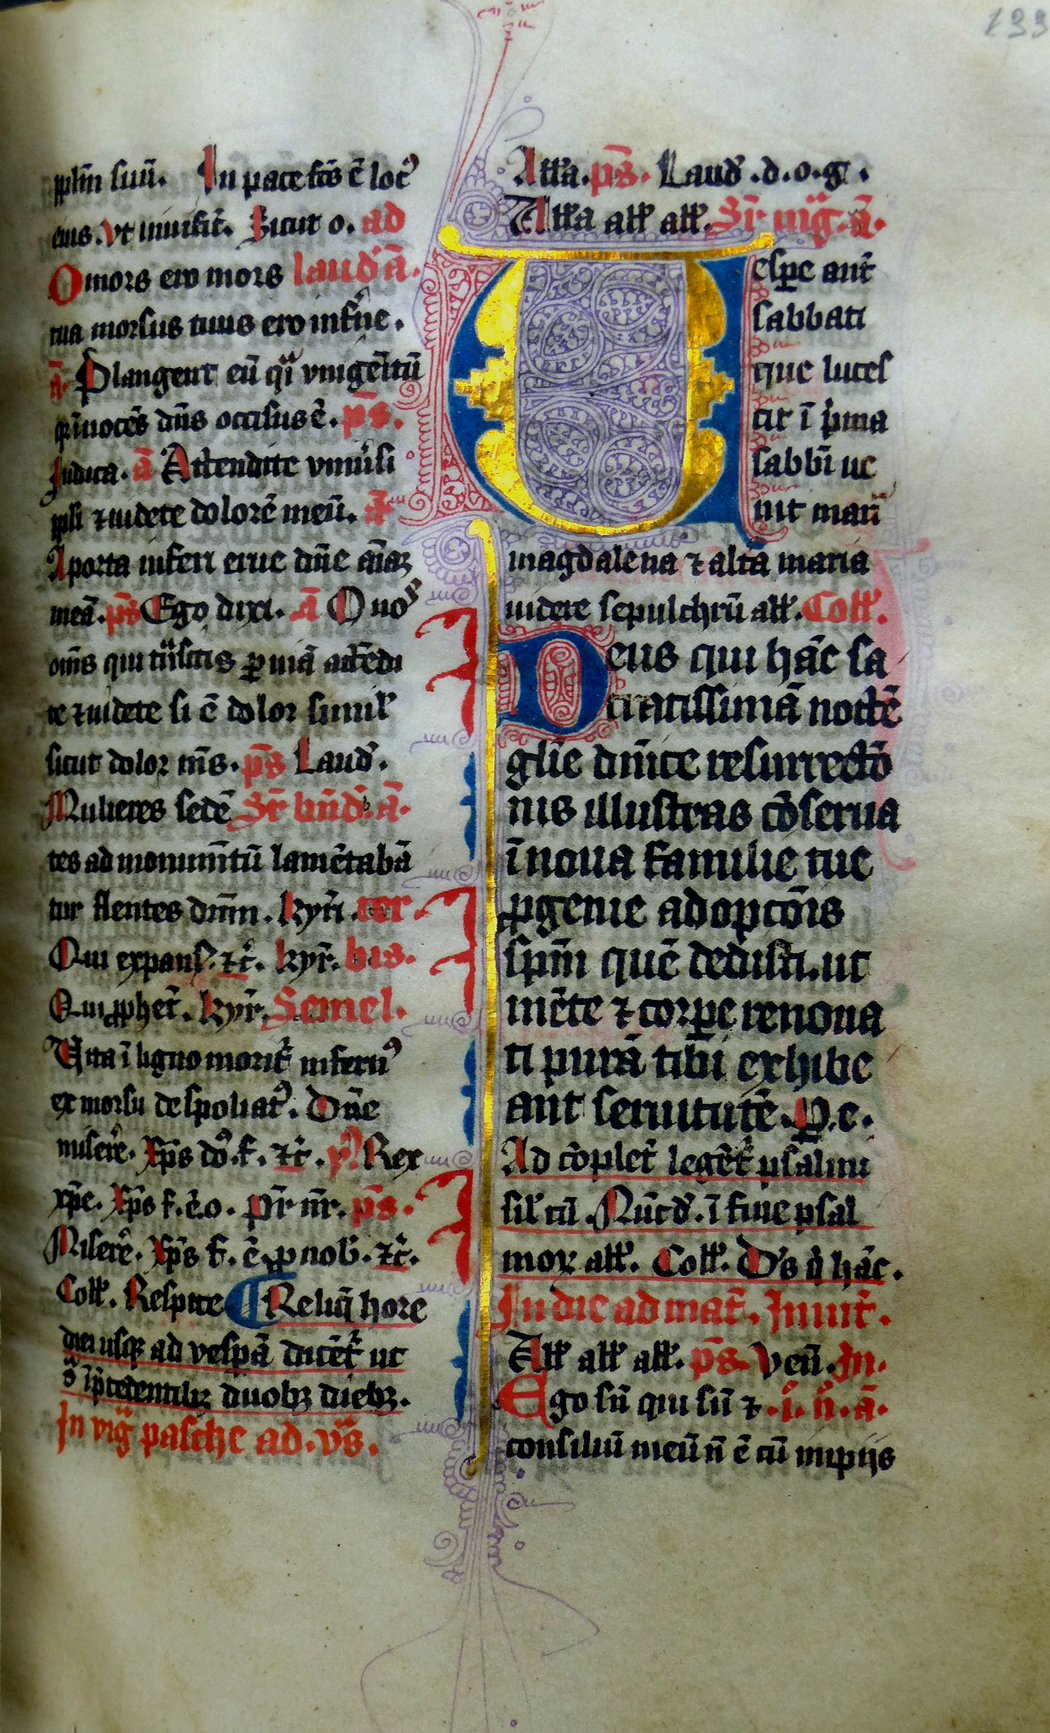 133
pl̄m suū. In pace fc̄s ē loc᷒
eius. Vt inuifit̄. Sicut o. ad
O mors ero mors laud̄ ā.
tua morsus tuus ero infn̄e.
ā. Plangent eū q̄i vnigēitū
q̄ inocēs dn̄s occisus ē. ps̄.
Judica. ā Attendite vniu͛si
ppli ⁊ uidete dolorē meū. ā
A porta inferi erue dn̄e aīaꝫ
meā. ps̄ Ego dixi. ā O uos
om̄s qui tn̄sitis ꝑ uiā attēdi
te ⁊ uidete si ē dolor simil᷒
sicut dolor m̄s. ps̄ Laud̄.
Mulieres sedē Sr̄ bn̄d̄. ā.
tes ad monumn̄tū lamētabā
tur flentes dn̄m. kyri. ter.
Qui expans̄. ⁊c̄. kyr̄. bis.
Qui ꝓphet̄. kyr̄. Semel.
Vita ī ligno morit᷒ infern᷒
ex morsu despoliat᷒. Dn̄e
miserē. Xp̄s do᷒. f. ⁊c̄. v᷒ Rex
xp̄e. Xp̄s f. ē. o. pr̄ nr̄. ps̄.
Miserē. Xp̄s f. ē ꝓ nob̄. ⁊c̄.
Coll̄. Respice Reliq̄ hore
diei usqꝫ ad vespā dicēt᷒ ut
s᷒ ī p̄cedentibꝫ duobꝫ diebꝫ.
In viḡ pasche ad. vs̄.
Alla. ps̄. Laud̄. d. o. g.
Alla all̄ all̄. Sr̄ mḡ. ā.
Vespe aut̄
sabbati
que luces
cit ī p̄ma
sabbī ue
nit mari͛
magdalena ⁊ altā maria
uidere sepulchrū all̄. Coll̄.
Deus qui hāc sa
cratissimā noctē
glīe dn̄ice resurrectō
nis illustras cōserua
ī noua familie tue
ꝓgenie adoptōis
sp̄m quē dedisti. ut
mēte ⁊ corꝑe renoua
ti purā tibi exhibe
ant seruitutē. P. e.
Ad cōplet̄ legēt᷒ psalmi
sil᷒ cū. Nūcd̄. ī fine psal
mox all̄. Coll̄. D᷒s q̄ hāc.
In die ad mat̄. Inuit̄.
All̄ all̄ all̄. ps̄. Veni. In.
Ego sū qui sū ⁊. i. n̄. ā.
consiliū meū n̄ ē cū impijs